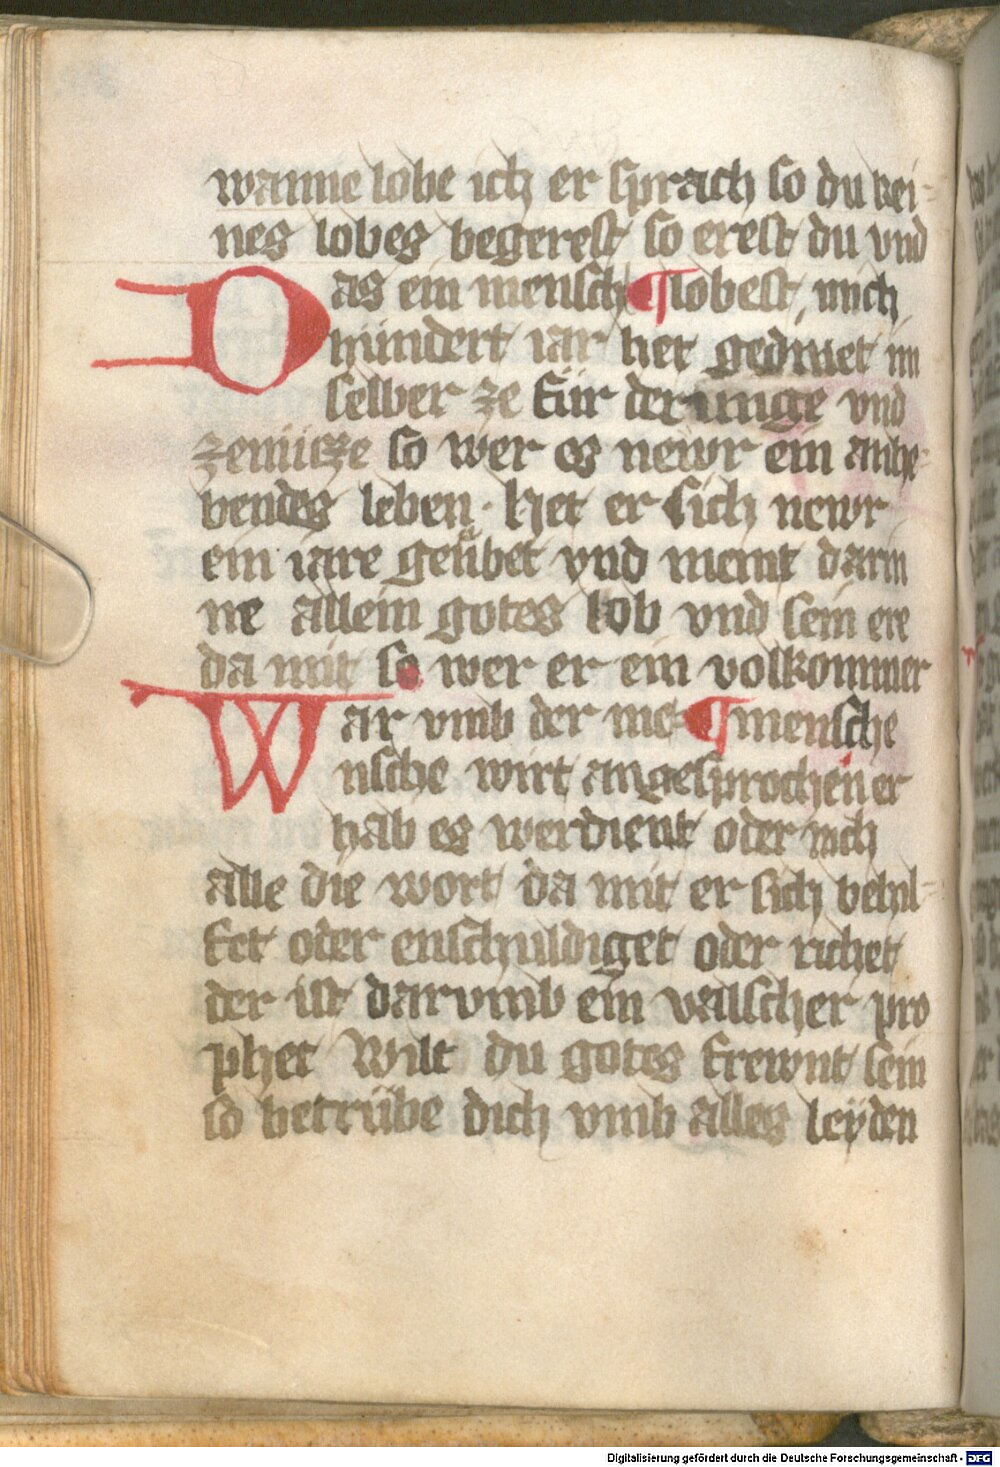 wanne lobe ich er sprach so du kei-
nes lobes begerest so erest du vnd
Das ein mensch ¶ lobest mich
hundert iar het gedinet im
selber ze für derunge vnd
zenücze so wer es newr ein anhe-
bendes leben · het er sich newr
ein iare geübet vnd meint darin
ne allein gotes lob vnd sein ere
da mit so wer er ein volkommer
War vmb der me- ¶ mensche
nsche wirt angesprochen er
hab es werdient oder nich
alle die wort da mit er sich behil-
fet oder enschuldiget oder richet
der ist darvmb ein valscher pro
phet Wilt du gotes frewnt sein
so betrübe dich vmb alles leÿden
Digitalisierung gefördert durch die Deutsche Forschungsgemeinschaft - DFG